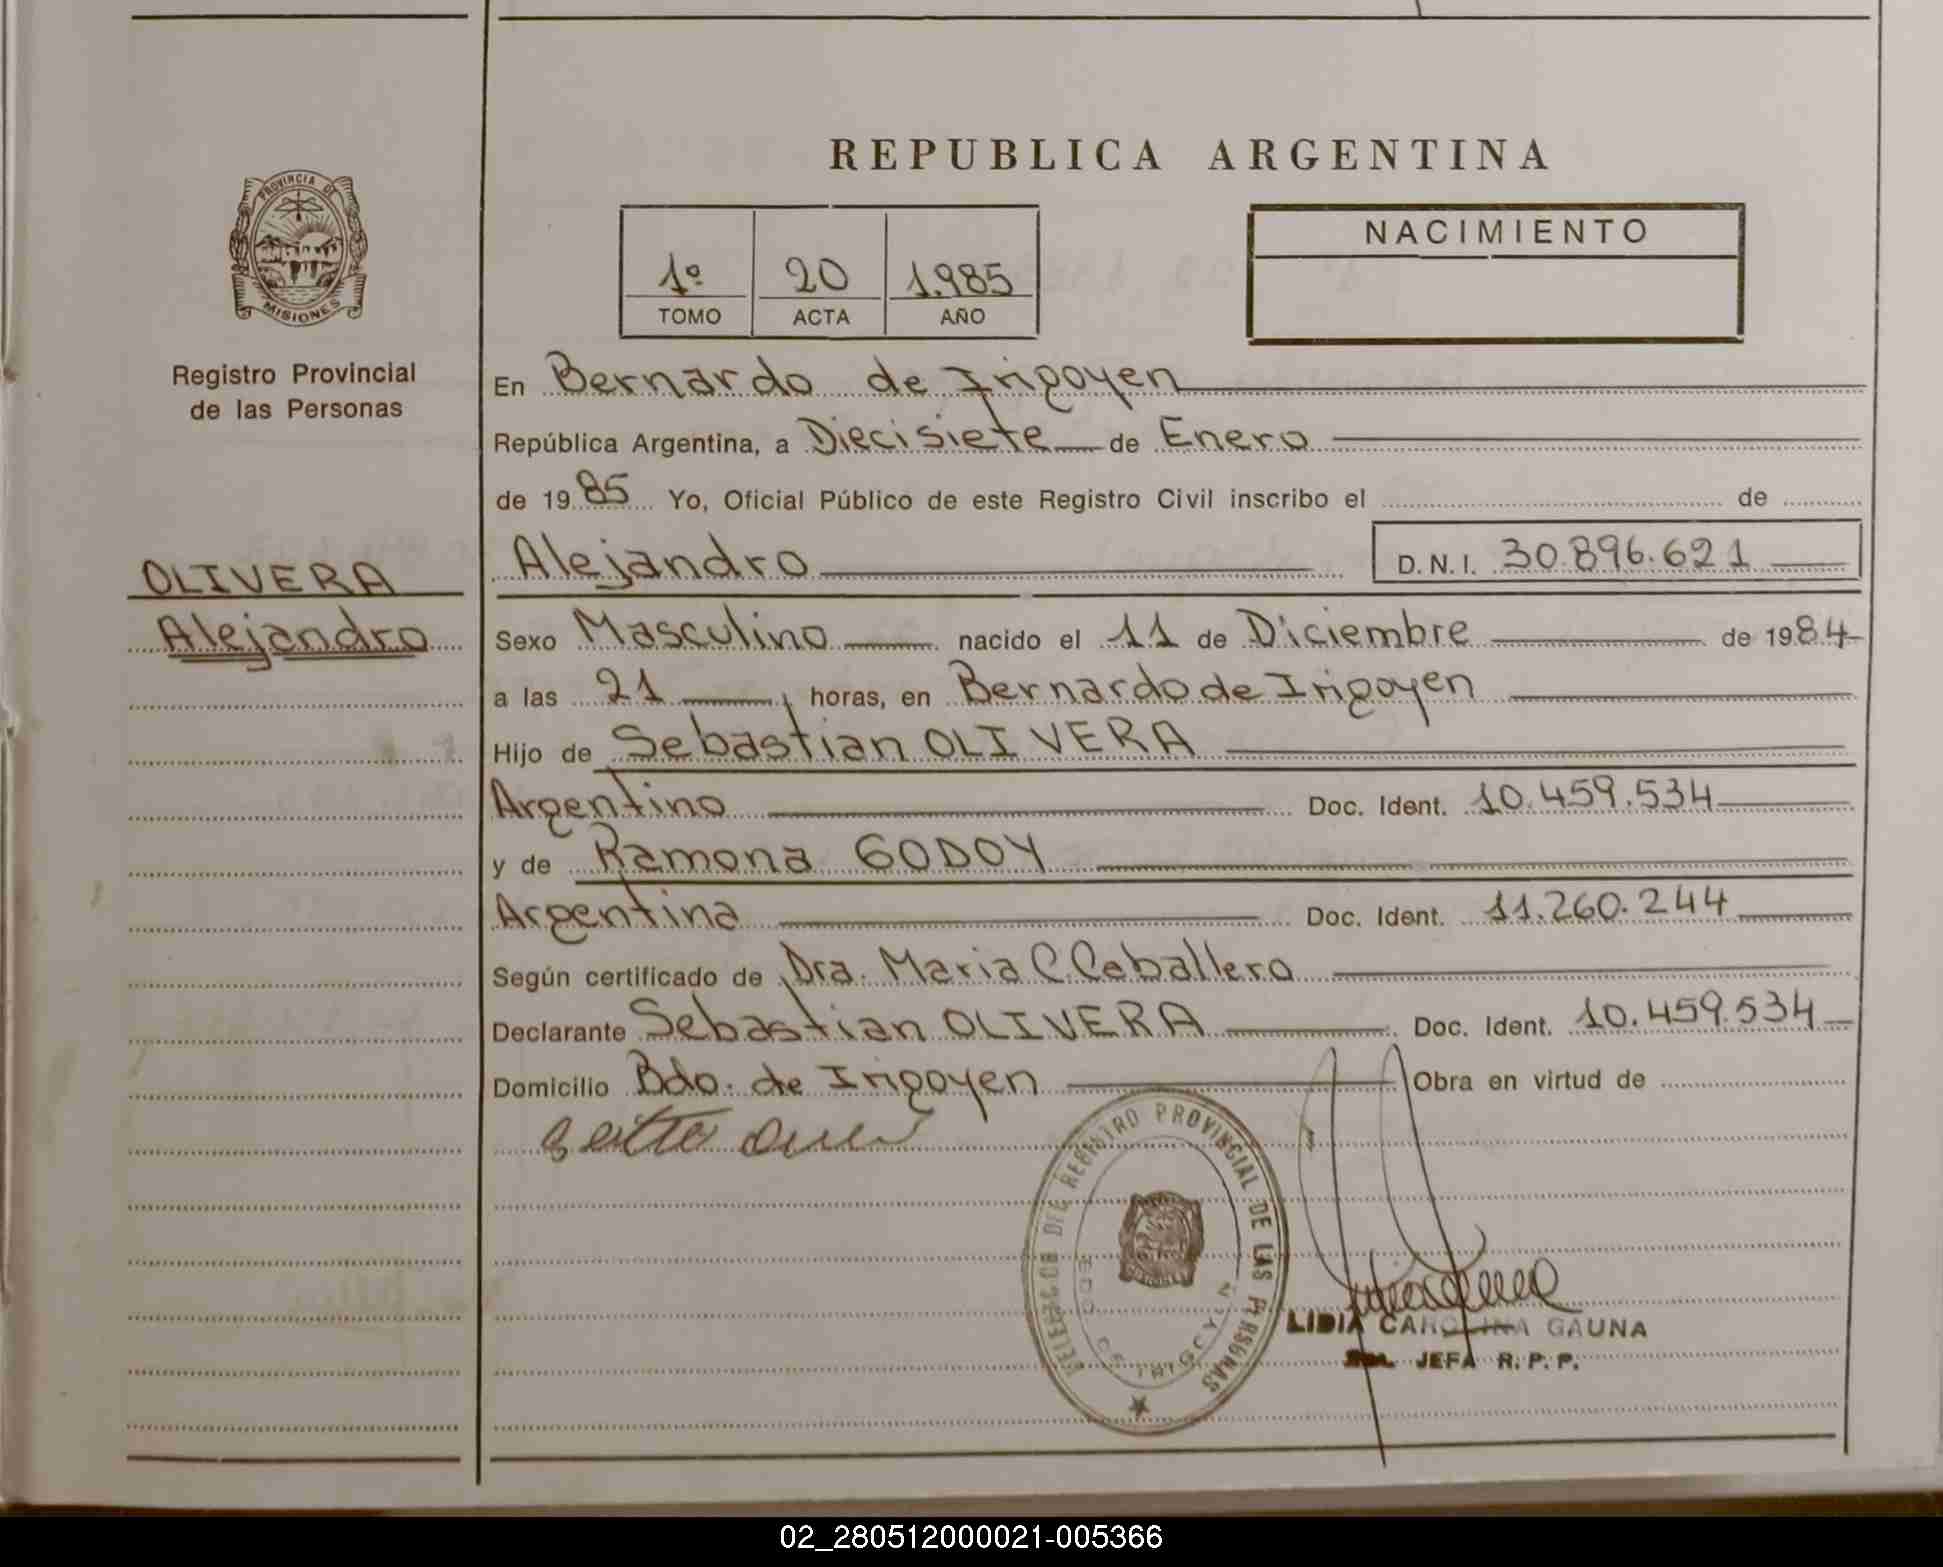 REPUBLICA ARGENTINA
PROVINCIA DE
MISIONES
Registro Provincial
de las Personas
1º 20 1.985
TOMO ACTA AÑO
NACIMIENTO
En Bernardo de Irigoyen
República Argentina, a Diecisiete de Enero
de 1985 Yo, Oficial Público de este Registro Civil inscribo el de
OLIVERA
Alejandro
Alejandro D.N.I. 30.896.621
Sexo Masculino nacido el 11 de Diciembre de 1984
a las 21 horas, en Bernardo de Irigoyen
Hijo de Sebastian OLIVERA
Argentino Doc. Ident. 10.459.534
y de Ramona GODOY
Argentina Doc. Ident. 11.260.244
Según certificado de Dra. Maria C. Caballero
Declarante Sebastian OLIVERA Doc. Ident. 10.459.534
Domicilio Bdo. de Irigoyen Obra en virtud de
REGISTRO PROVINCIAL DE LAS PERSONAS
BDO DE IRIGOYEN
LIDIA CAROLINA GAUNA
JEFA R.P.P.
02_280512000021-005366